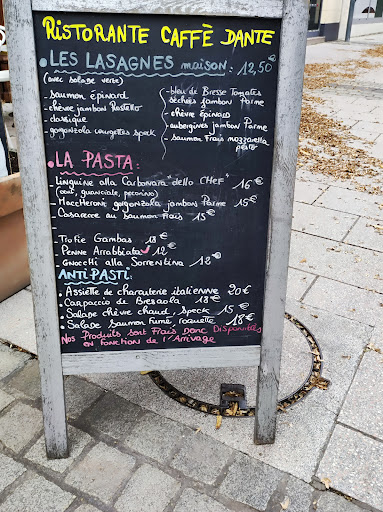 RISTORANTE CAFFÈ DANTE
LES LASAGNES maison : 12,50€
(avec salade verte)
- saumon épinard
- chèvre jambon Rostello
- classique
- gorgonzola courgettes speck
- bleu de Bresse Tomates
séchées jambon Parme
- chèvre épinard
- aubergines jambon Parme
- saumon frais mozzarella
pesto
LA PASTA:
- Linguine alla Carbonara "dello CHef" 16€
(oeuf, guanciale, pecorino)
- Maccheroni gorgonzola jambon Parme 15€
- Casarecce au saumon frais 15€
- Trofie Gambas 18€
- Penne Arrabbiata 12€
- Gnocchi alla Sorrentina 12€
ANTIPASTI.
- Assiette de charcuterie italienne 20€
- Carpaccio de Bresaola 18€
- Salade chèvre chaud, speck 15€
- Salade saumon fumé roquette 18€
Nos Produits sont Frais Donc Disponibles
en fonction de l'Arrivage